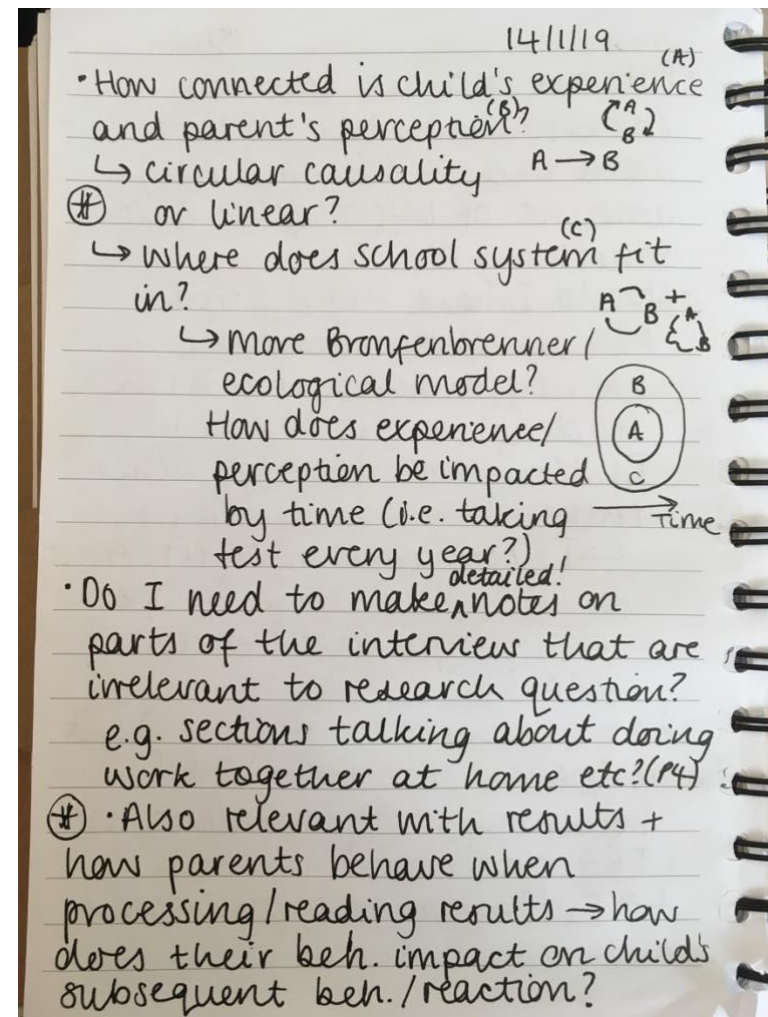 14/1/19
(A)
• How connected is child's experience
(B)
and parent's perception?
A
B
↳ circular causality A → B
# or linear?
(C)
↳ where does school system fit
in?
A B + A B
↳ more Bronfenbrenner/
ecological model? B
How does experience/ A
perception be impacted C
by time (i.e. taking Time
test every year?)
detailed!
• Do I need to make ^ notes on
parts of the interview that are
irrelevant to research question?
e.g. sections talking about doing
work together at home etc? (P4)
# • Also relevant with results +
how parents behave when
processing/reading results → how
does their beh. impact on child's
subsequent beh./reaction?